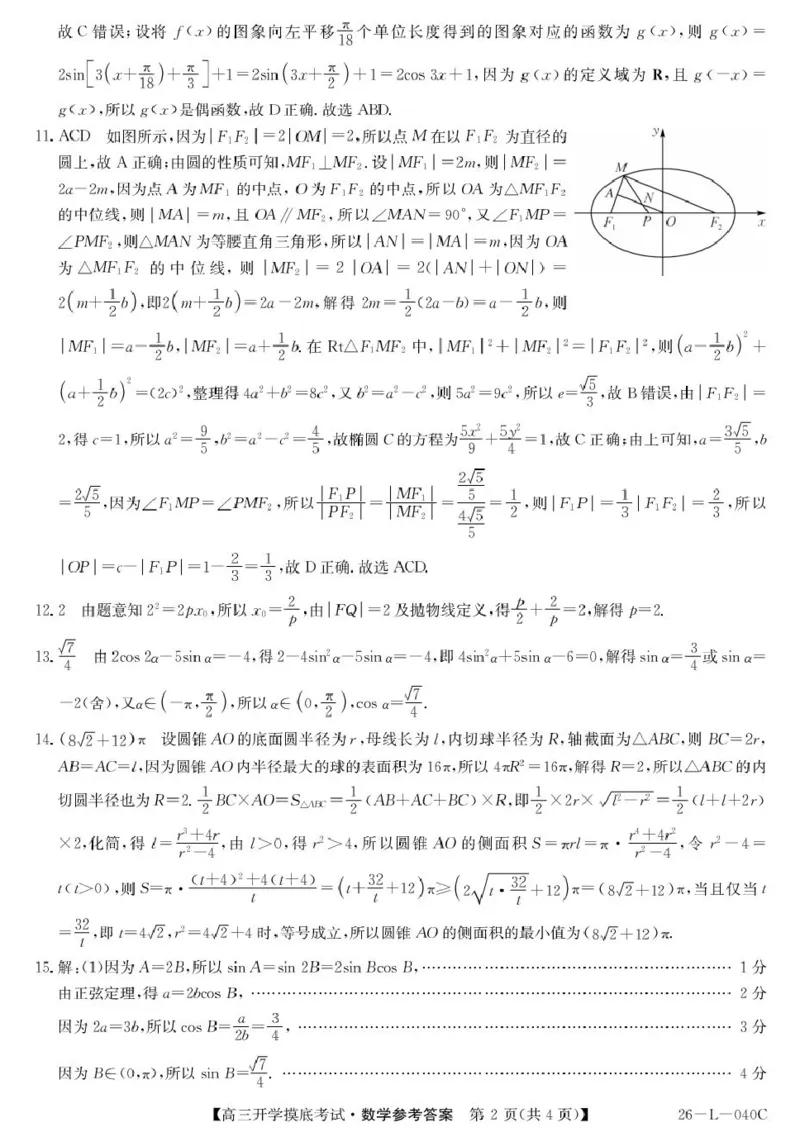 故 C 错误;设将 f(x)的图象向左平移π/18个单位长度得到的图象对应的函数为 g(x),则 g(x)=
2sin[3(x+π/18)+π/3]+1=2sin(3x+π/2)+1=2cos 3x+1,因为 g(x)的定义域为 R,且 g(-x)=
g(x),所以 g(x)是偶函数,故 D 正确.故选 ABD.
11. ACD 如图所示,因为|F₁F₂|=2|OM|=2,所以点 M 在以 F₁F₂ 为直径的
圆上,故 A 正确;由圆的性质可知,MF₁⊥MF₂.设|MF₁|=2m,则|MF₂|=
2a-2m,因为点 A 为 MF₁ 的中点,O 为 F₁F₂ 的中点,所以 OA 为△MF₁F₂
的中位线,则|MA|=m,且 OA∥MF₂,所以∠MAN=90°,又∠F₁MP=
∠PMF₂,则△MAN 为等腰直角三角形,所以|AN|=|MA|=m,因为 OA
为 △MF₁F₂ 的中位线,则 |MF₂|=2|OA|=2(|AN|+|ON|)=
2(m+1/2b),即2(m+1/2b)=2a-2m,解得 2m=1/2(2a-b)=a-1/2b,则
y
M
A
N
F₁
P
O
F₂
x
|MF₁|=a-1/2b,|MF₂|=a+1/2b.在 Rt△F₁MF₂ 中,|MF₁|²+|MF₂|²=|F₁F₂|²,则(a-1/2b)²+
(a+1/2b)²=(2c)²,整理得 4a²+b²=8c²,又 b²=a²-c²,则 5a²=9c²,所以 e=√5/3,故 B 错误,由|F₁F₂|=
2,得 c=1,所以 a²=9/5,b²=a²-c²=4/5,故椭圆 C 的方程为5x²/9+5y²/4=1,故 C 正确;由上可知,a=3√5/5,b
=2√5/5,因为∠F₁MP=∠PMF₂,所以|F₁P|/|PF₂|=|MF₁|/|MF₂|=(2√5/5)/(4√5/5)=1/2,则|F₁P|=1/3|F₁F₂|=2/3,所以
|OP|=c-|F₁P|=1-2/3=1/3,故 D 正确.故选 ACD.
12. 2 由题意知 2²=2px₀,所以 x₀=2/p,由|FQ|=2 及抛物线定义,得p/2+2/p=2,解得 p=2.
13. √7/4 由 2cos 2α-5sin α=-4,得 2-4sin²α-5sin α=-4,即 4sin²α+5sin α-6=0,解得 sin α=3/4或 sin α=
-2(舍),又α∈(-π,π/2),所以 α∈(0,π/2),cos α=√7/4.
14. (8√2+12)π 设圆锥 AO 的底面圆半径为 r,母线长为 l,内切球半径为 R,轴截面为△ABC,则 BC=2r,
AB=AC=l,因为圆锥 AO 内半径最大的球的表面积为 16π,所以 4πR²=16π,解得 R=2,所以△ABC 的内
切圆半径也为 R=2. 1/2BC×AO=S△ABC=1/2(AB+AC+BC)×R,即1/2×2r×√(l²-r²)=1/2(l+l+2r)
×2,化简,得 l=(r³+4r)/(r²-4),由 l>0,得 r²>4,所以圆锥 AO 的侧面积 S=πrl=π·(r⁴+4r²)/(r²-4),令 r²-4=
t(t>0),则 S=π·((t+4)²+4(t+4))/t=(t+32/t+12)π≥(2√(t·32/t)+12)π=(8√2+12)π,当且仅当 t
=32/t,即 t=4√2,r²=4√2+4 时,等号成立,所以圆锥 AO 的侧面积的最小值为(8√2+12)π.
15. 解:(1)因为 A=2B,所以 sin A=sin 2B=2sin Bcos B,…… 1 分
由正弦定理,得 a=2bcos B,…… 2 分
因为 2a=3b,所以 cos B=a/2b=3/4,…… 3 分
因为 B∈(0,π),所以 sin B=√7/4.…… 4 分
【高三开学摸底考试·数学参考答案 第 2 页(共 4 页)】 26-L-040C